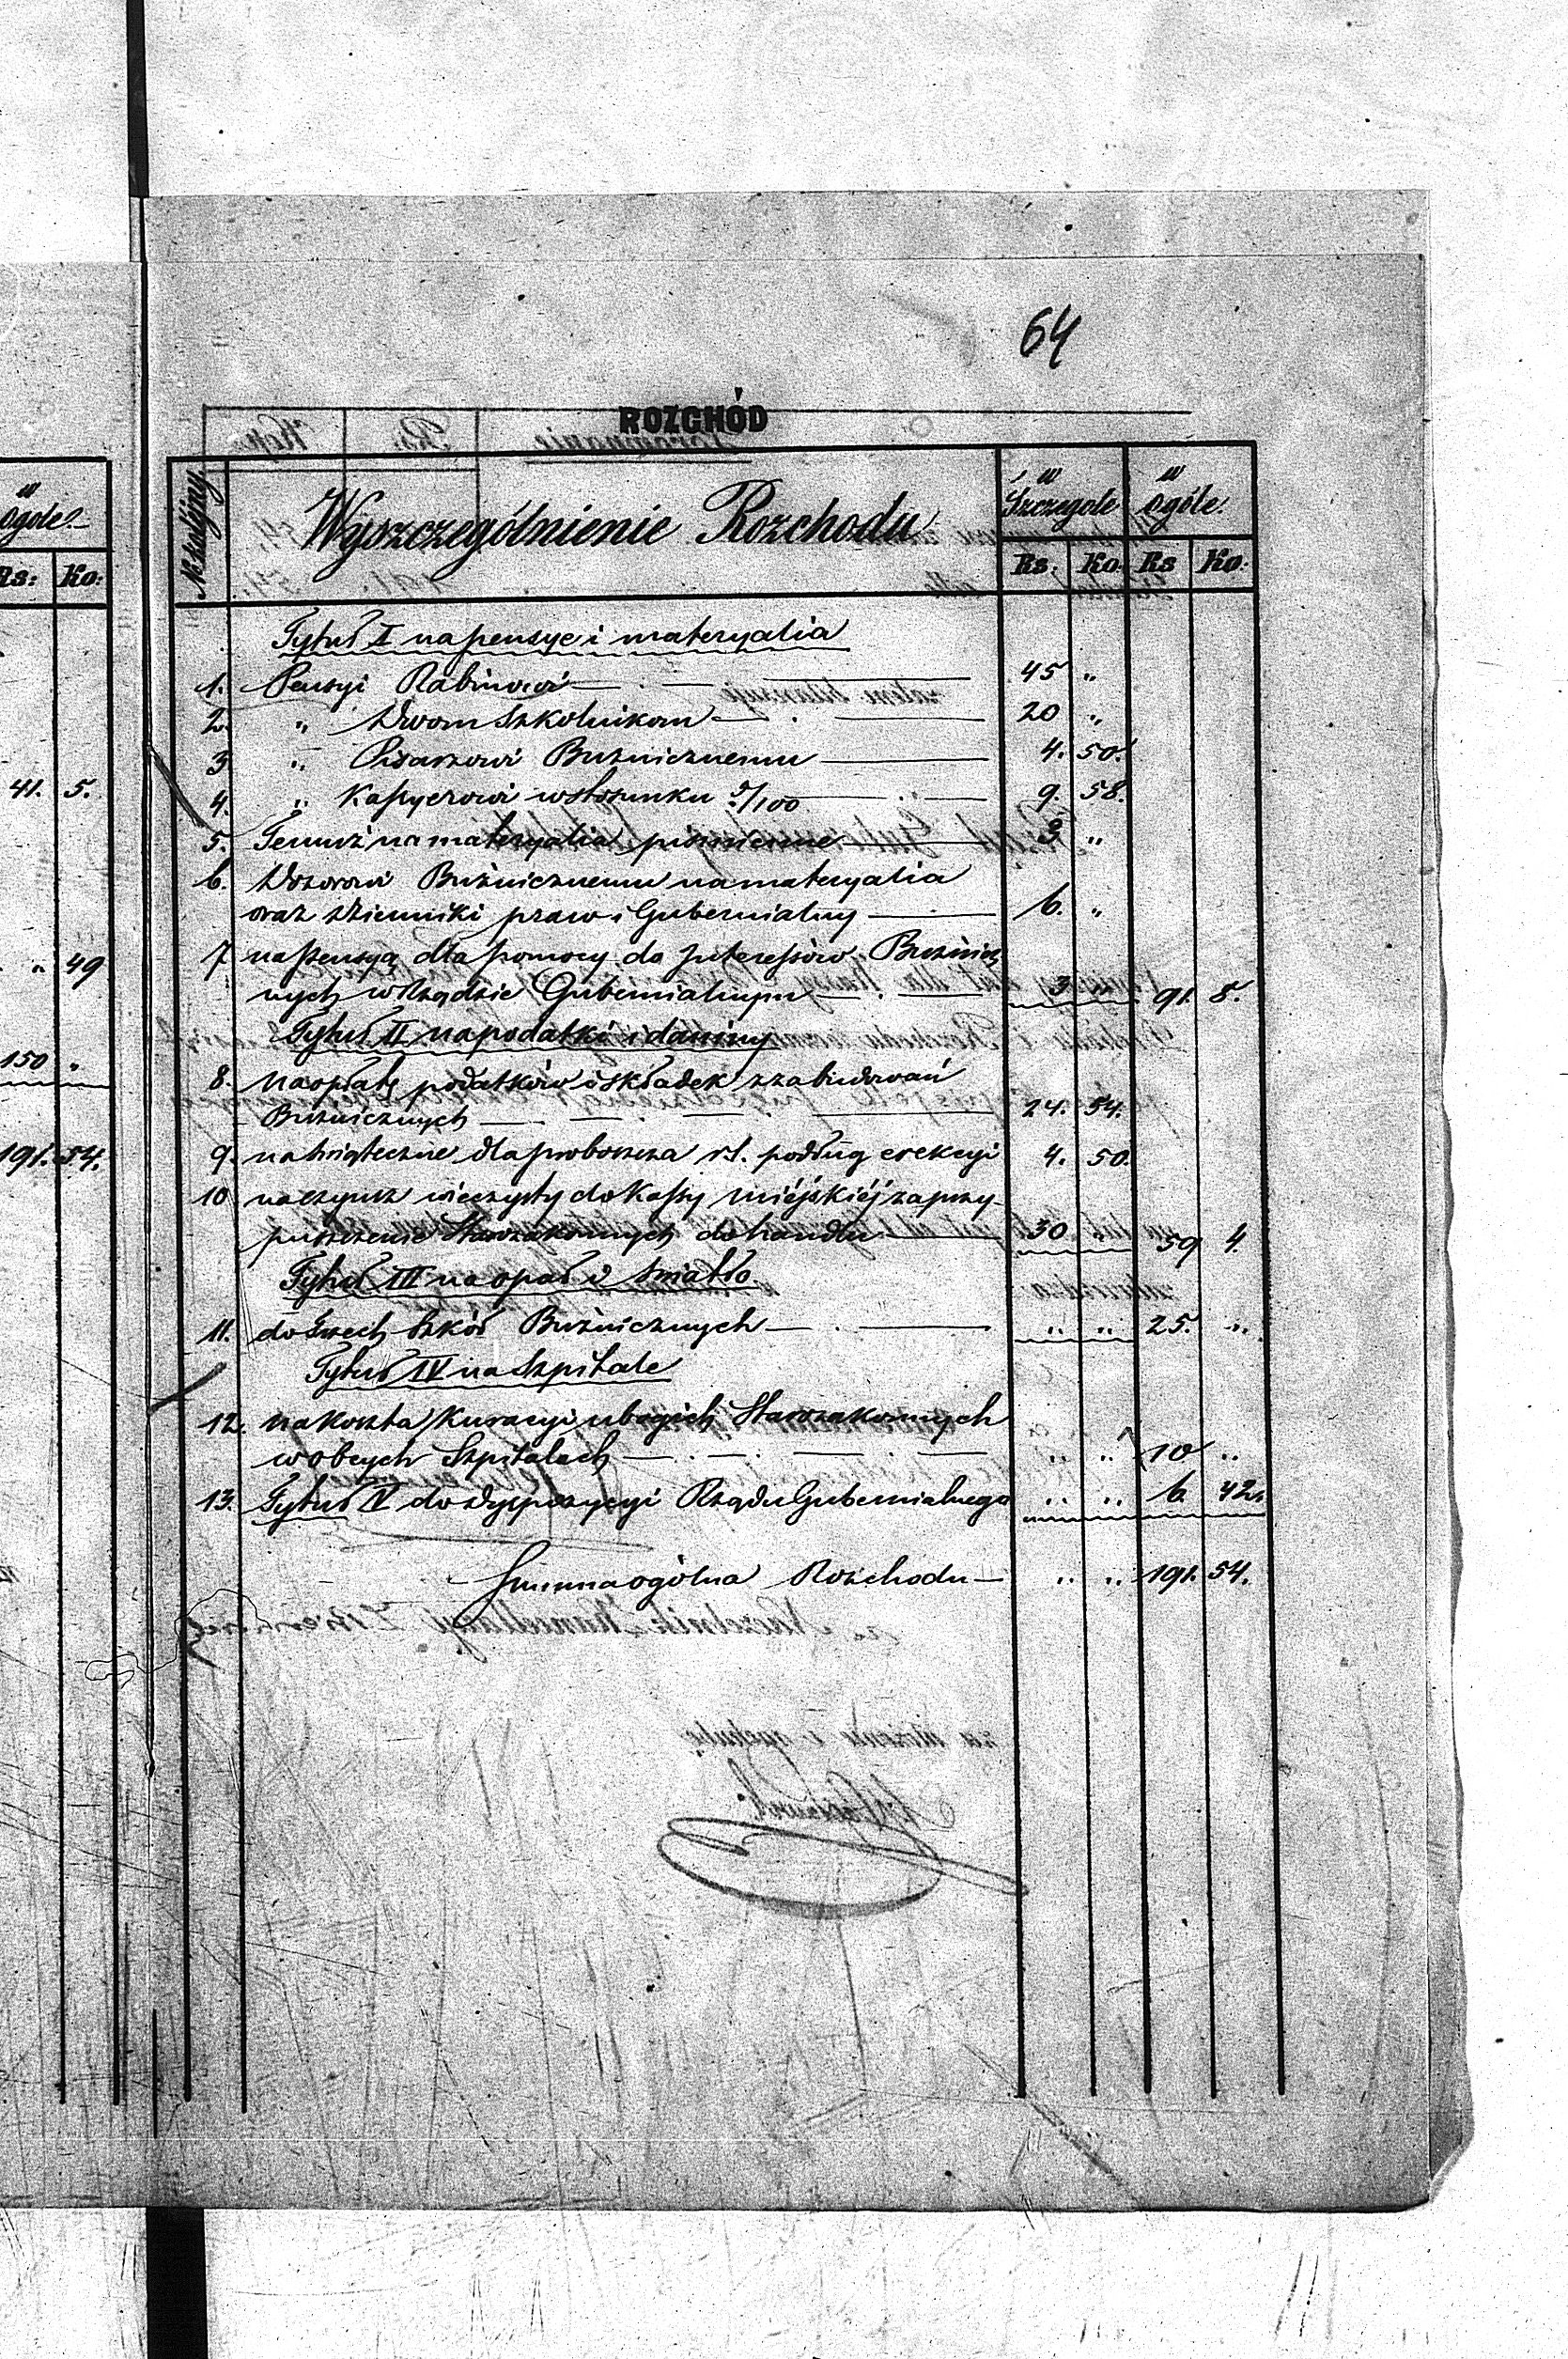 64
ROZCHÓD
w Ogóle
Rs: Ko:
41. 5.
" 49
150 "
191. 54.
№ kolejny
Wyszczególnienie Rozchodu
w Szczególe w Ogóle.
Rs: Ko. Rs Ko:
Tytuł I na pensye i materyalia
1. Pensyi Rabinowi 45 "
2. " Dwom Szkolnikom 20 "
3 " Pisarzowi Bużnicznemu 4. 50.
4. " Kassyerowi w stosunku 5/100 9. 58.
5. Temuż na materyalia piśmienne 3 "
6. Dozorowi Bużnicznemu na materyalia
oraz dzienniki praw i Gubernialny 6. "
7 na pensyą dla pomocy do Interessów Bużnicz
nych w Rządzie Gubernialnym 3 " 91. 8.
Tytuł II na podatki i daniny
8. na opłatę podatków i składek z zabudowań
Bużnicznych 24. 54.
9. na świąteczne dla proboszcza r.l. podług erekcyi 4. 50.
10 na czynsz wieczysty do Kassy miéjskiéj za przy-
puszczenie Starozakonnych do handlu 30 " 59 4.
Tytuł III na opał i światło
11. do trzech Szkół Bużnicznych " " 25. "
Tytuł IV na Szpitale
12. na koszta Kuracyi ubogich Starozakonnych
w obcych Szpitalach " " 10 "
13. Tytuł V do dyspozycyi Rządu Gubernialnego " " 6. 42.
Summa ogólna Rozchodu " " 191. 54.